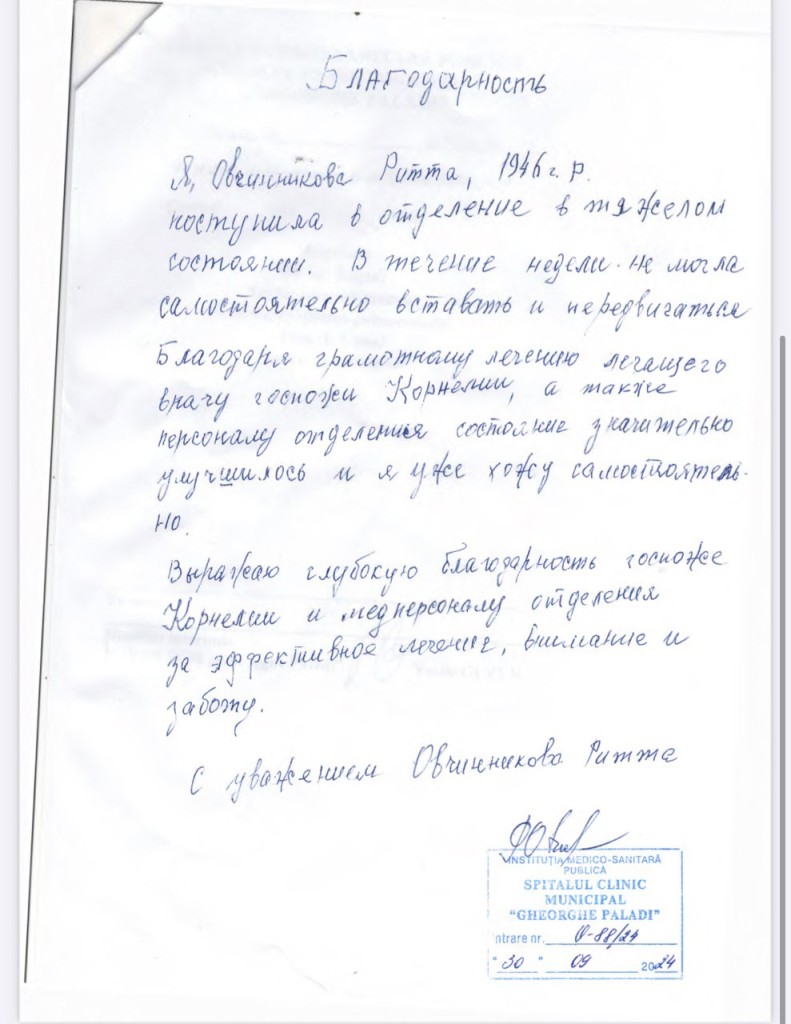 Благодарность
Я, Овчинникова Ритта, 1946 г. р.
поступила в отделение в тяжелом
состоянии. В течение недели не могла
самостоятельно вставать и передвигаться
Благодаря грамотному лечению лечащего
врачу госпожи Корнелии, а также
персоналу отделения состояние значительно
улучшилось и я уже хожу самостоятель-
но.
Выражаю глубокую благодарность госпоже
Корнелии и медперсоналу отделения
за эффективное лечение, внимание и
заботу.
С уважением Овчинникова Ритта
INSTITUȚIA MEDICO-SANITARĂ
PUBLICĂ
SPITALUL CLINIC
MUNICIPAL
"GHEORGHE PALADI"
Intrare nr. O-88/24
"30" 09 2024